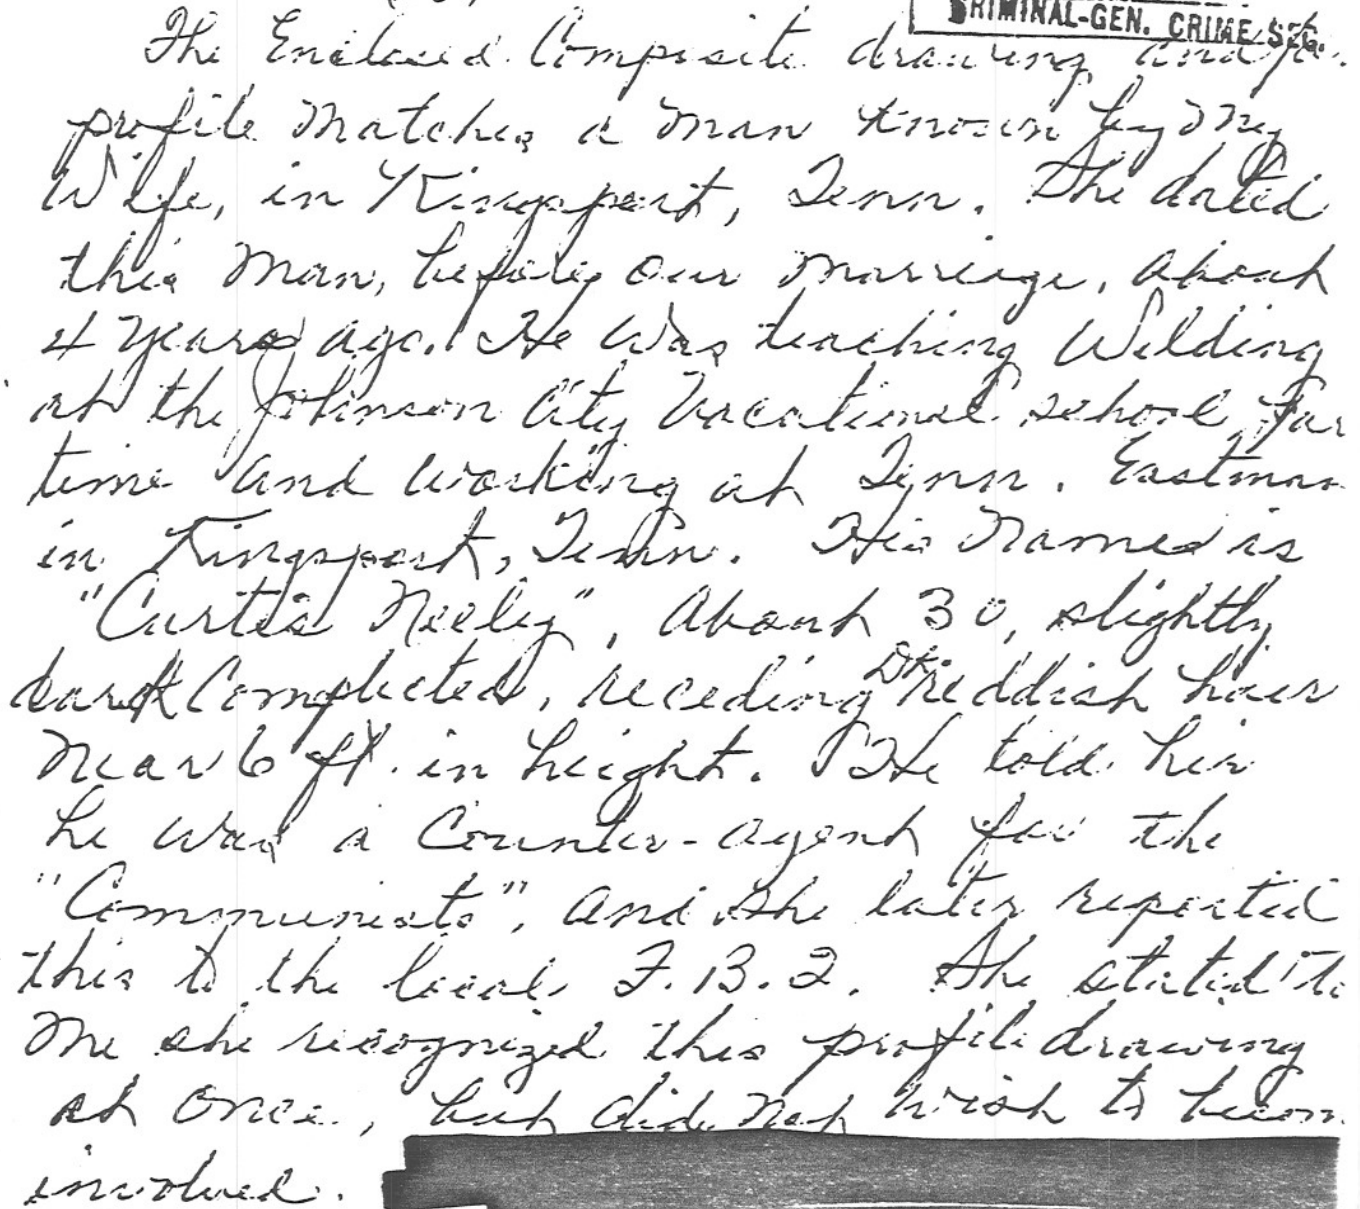 CRIMINAL-GEN. CRIME SEC.
The Enclosed Composite drawing and/or
profile Matches a man known by my
Wife, in Kingsport, Tenn. She dated
this man, before our marriage, about
4 years ago. He was teaching Welding
at the Johnson City Vocational school Par
time and working at Tenn. Eastman
in Kingsport, Tenn. His Named is
"Curtis Neely", About 30, slightly
dark Complected, receding Dk. reddish hair
Near 6 ft. in height. He told her
he was a Counter-agent for the
"Communists", and she later reported
this to the local F.B.I. She stated to
Me she recognized this profile drawing
at once, but did not wish to becom
involved.